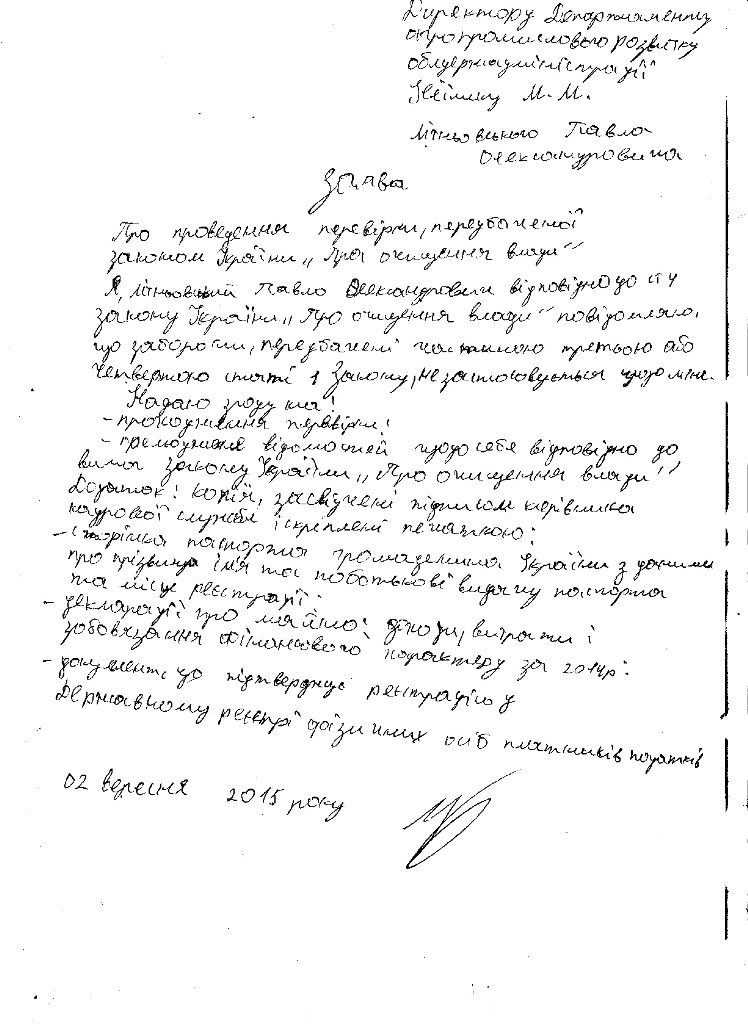 Директору Департаменту
агропромислового розвитку
облдержадміністрації
М. М.
Літньовського Павла
Олександровича
Заява
Про проведення перевірки, передбаченої
законом України „Про очищення влади"
Я, Літньовський Павло Олександрович відповідно до ст 4
закону України „Про очищення влади" повідомляю,
що заборони, передбачені частиною третьою або
четвертою статті 1 Закону, не застосовується щодо мене.
Надаю згоду на:
- проходження перевірки;
- оприлюднення відомостей щодо себе відповідно до
вимог закону України „Про очищення влади"
Додаток: копії, засвідчені підписом керівника
кадрової служби і скріплені печаткою:
- сторінка паспорта громадянина України з даними
про прізвище ім'я та по батькові видачу паспорта
та місце реєстрації.
- декларації про майно, доходи, витрати і
зобов'язання фінансового характеру за 2014р.
- документ, що підтверджує реєстрацію у
Державному реєстрі фізичних осіб платників податків
02 вересня 2015 року